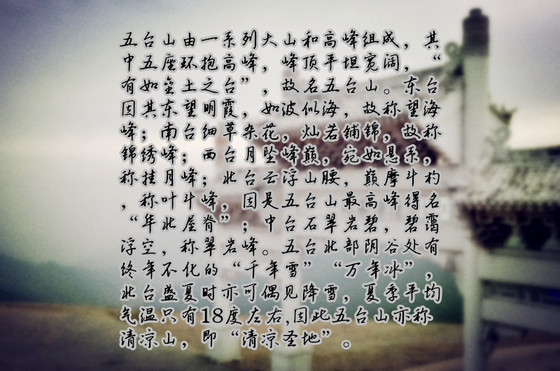 五台山由一系列大山和高峰组成，其
中五座环抱高峰，峰顶平坦宽阔，“
有如垒土之台”，故名五台山。东台
因其东望明霞，如波似海，故称望海
峰；南台细草杂花，灿若铺锦，故称
锦绣峰；西台月坠峰巅，宛如悬系，
称挂月峰；北台云浮山腰，巅摩斗杓
，称叶斗峰，因是五台山最高峰得名
“华北屋脊”；中台石翠岩碧，碧霭
浮空，称翠岩峰。五台北部阴谷处有
终年不化的“千年雪”“万年冰”，
北台盛夏时亦可偶见降雪，夏季平均
气温只有18度左右,因此五台山亦称
清凉山，即“清凉圣地”。